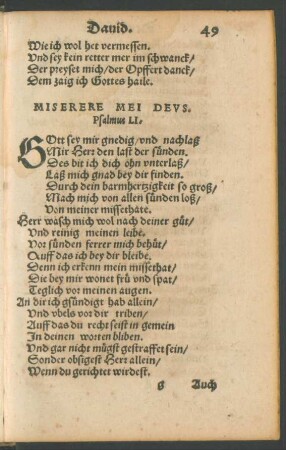 Dauid. 49
Wie ich wol het vermessen.
Vnd sey kein retter mer im schwanck/
Der preyset mich/ der Opffert danck/
Dem zaig ich Gottes haile.
MISERERE MEI DEVS.
Psalmus LI.
GOtt sey mir gnedig/ vnd nachlaß
Mir Herr den last der sünden.
Des bit ich dich ohn vnterlaß/
Laß mich gnad bey dir finden.
Durch dein barmhertzigkeit so groß/
Mach mich von allen sünden loß/
Von meiner missethate.
Herr wasch mich wol nach deiner güt/
Vnd reinig meinen leibe.
Vor sünden ferrer mich behüt/
Auff das ich bey dir bleibe.
Denn ich erkenn mein missethat/
Die bey mir wonet frü vnd spat/
Teglich vor meinen augen.
An dir ich gsündigt hab allein/
Vnd vbels vor dir triben/
Auff das du recht seist in gemein
In deinen worten bliben.
Vnd gar nicht mügst gestraffet sein/
Sonder obsigest Herr allein/
Wenn du gerichtet wirdest.
G Auch